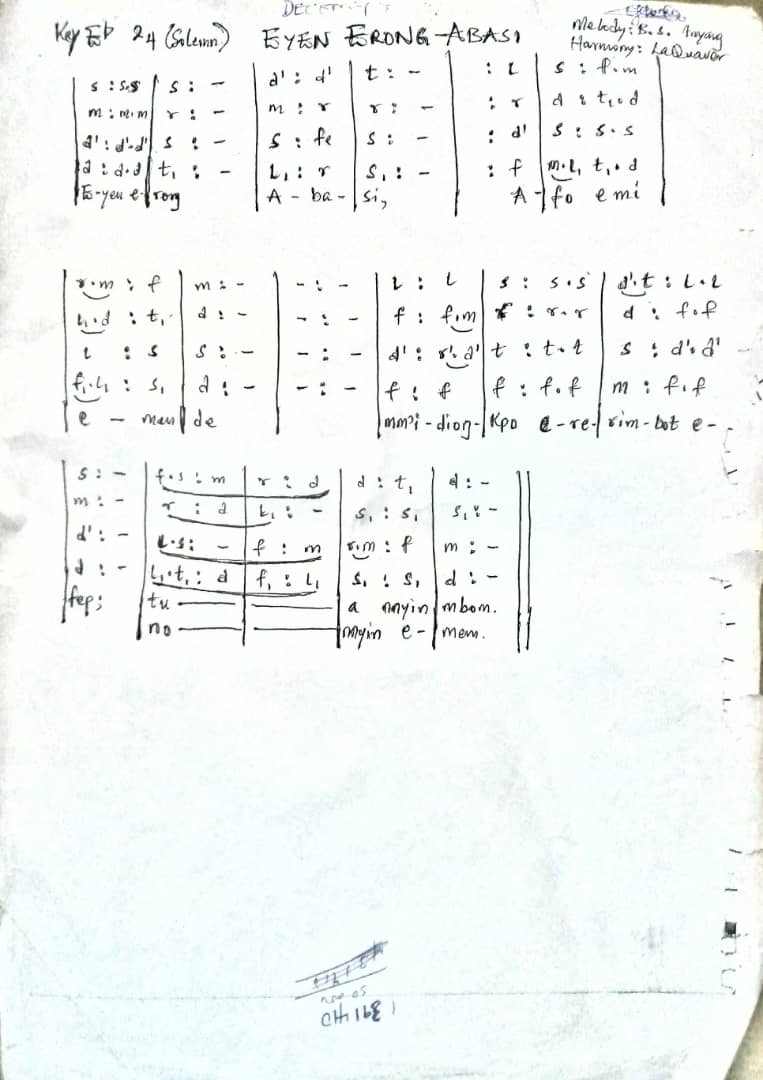 Key Eb 24 (Solemn) EYEN ERONG-ABASI Melody: B.S. Inyang
Harmony: LaQuavor
| s : s.s | s : - | d' : d' | t : - | : l | s : f.m |
| m : m.m | r : - | m : r | r : - | : r | d : t₁.d |
| d' : d'.d' | s : - | s : fe | s : - | : d' | s : s.s |
| d : d.d | t₁ : - | l₁ : r | s₁ : - | : f | m.l₁ t₁.d |
| E-yen e- | rong | A - ba - | si, | A - | fo e mi |
| r.m : f | m : - | - : - | l : l | s : s.s | d'.t : l.l
| l₁.d : t₁ | d : - | - : - | f : f.m | f : r.r | d : f.f
| l : s | s : - | - : - | d' : r'.d' | t : t.t | s : d'.d'
| f₁.l₁ : s₁ | d : - | - : - | f : f | f : f.f | m : f.f
| e - men | de | | mmi - diong - | kpo e - re - | rim - bot e -
| s : - | f.s : m | r : d | d : t₁ | d : - ||
| m : - | r : d | l₁ : - | s₁ : s₁ | s₁ : - ||
| d' : - | l.s : - | f : m | r.m : f | m : - ||
| d : - | l₁.t₁ : d | f₁ : l₁ | s₁ : s₁ | d : - ||
| fep; | tu — | — | a nnyin | mbom. ||
| no — | — | nnyin e - | mem. ||